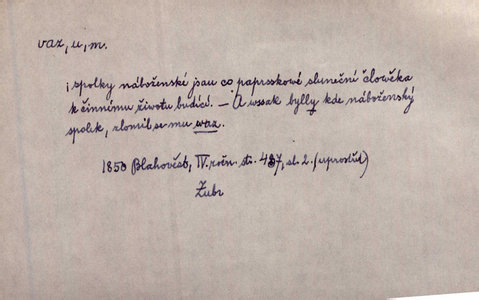 vaz, u, m.
; spolky náboženské jsau co paprskowé sluneční člowěka
k činnému životu budící. — A wssak bylly kde náboženský
spolk, zlomil se mu waz.
1850 Blahověst, IV. ročn. str. 437, sl. 2. (uprostřed)
Žubr